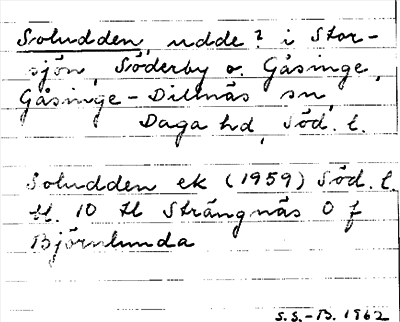 Soludden, udde? i Stor-
sjön, Söderby o. Gåsinge,
Gåsinge-Dillnäs sn,
Daga hd, Söd. l.
Soludden ek (1959) Söd. l.
bl. 10 tl Strängnäs O f
Björnlunda
S.S.-B. 1962